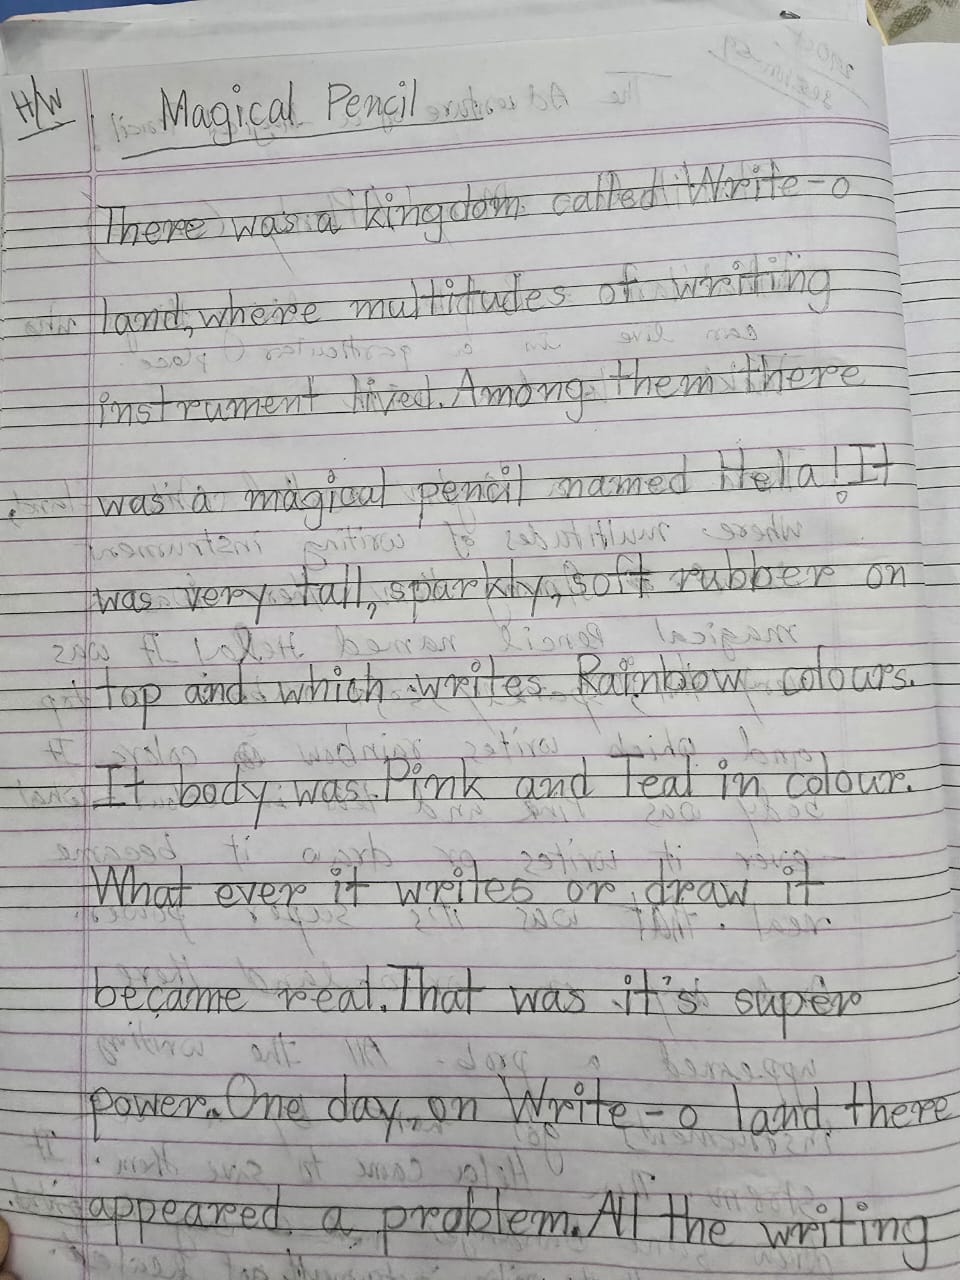 H/W
Magical Pencil
There was a kingdom called Write-o
land, where multitudes of writing
instrument lived. Among them there
was a magical pencil named Hela! It
was very tall, sparkly, soft rubber on
top and which writes Rainbow colours.
It body was Pink and Teal in colour.
What ever it writes or draw it
became real. That was it's super
power. One day, on Write-o land there
appeared a problem. All the writing